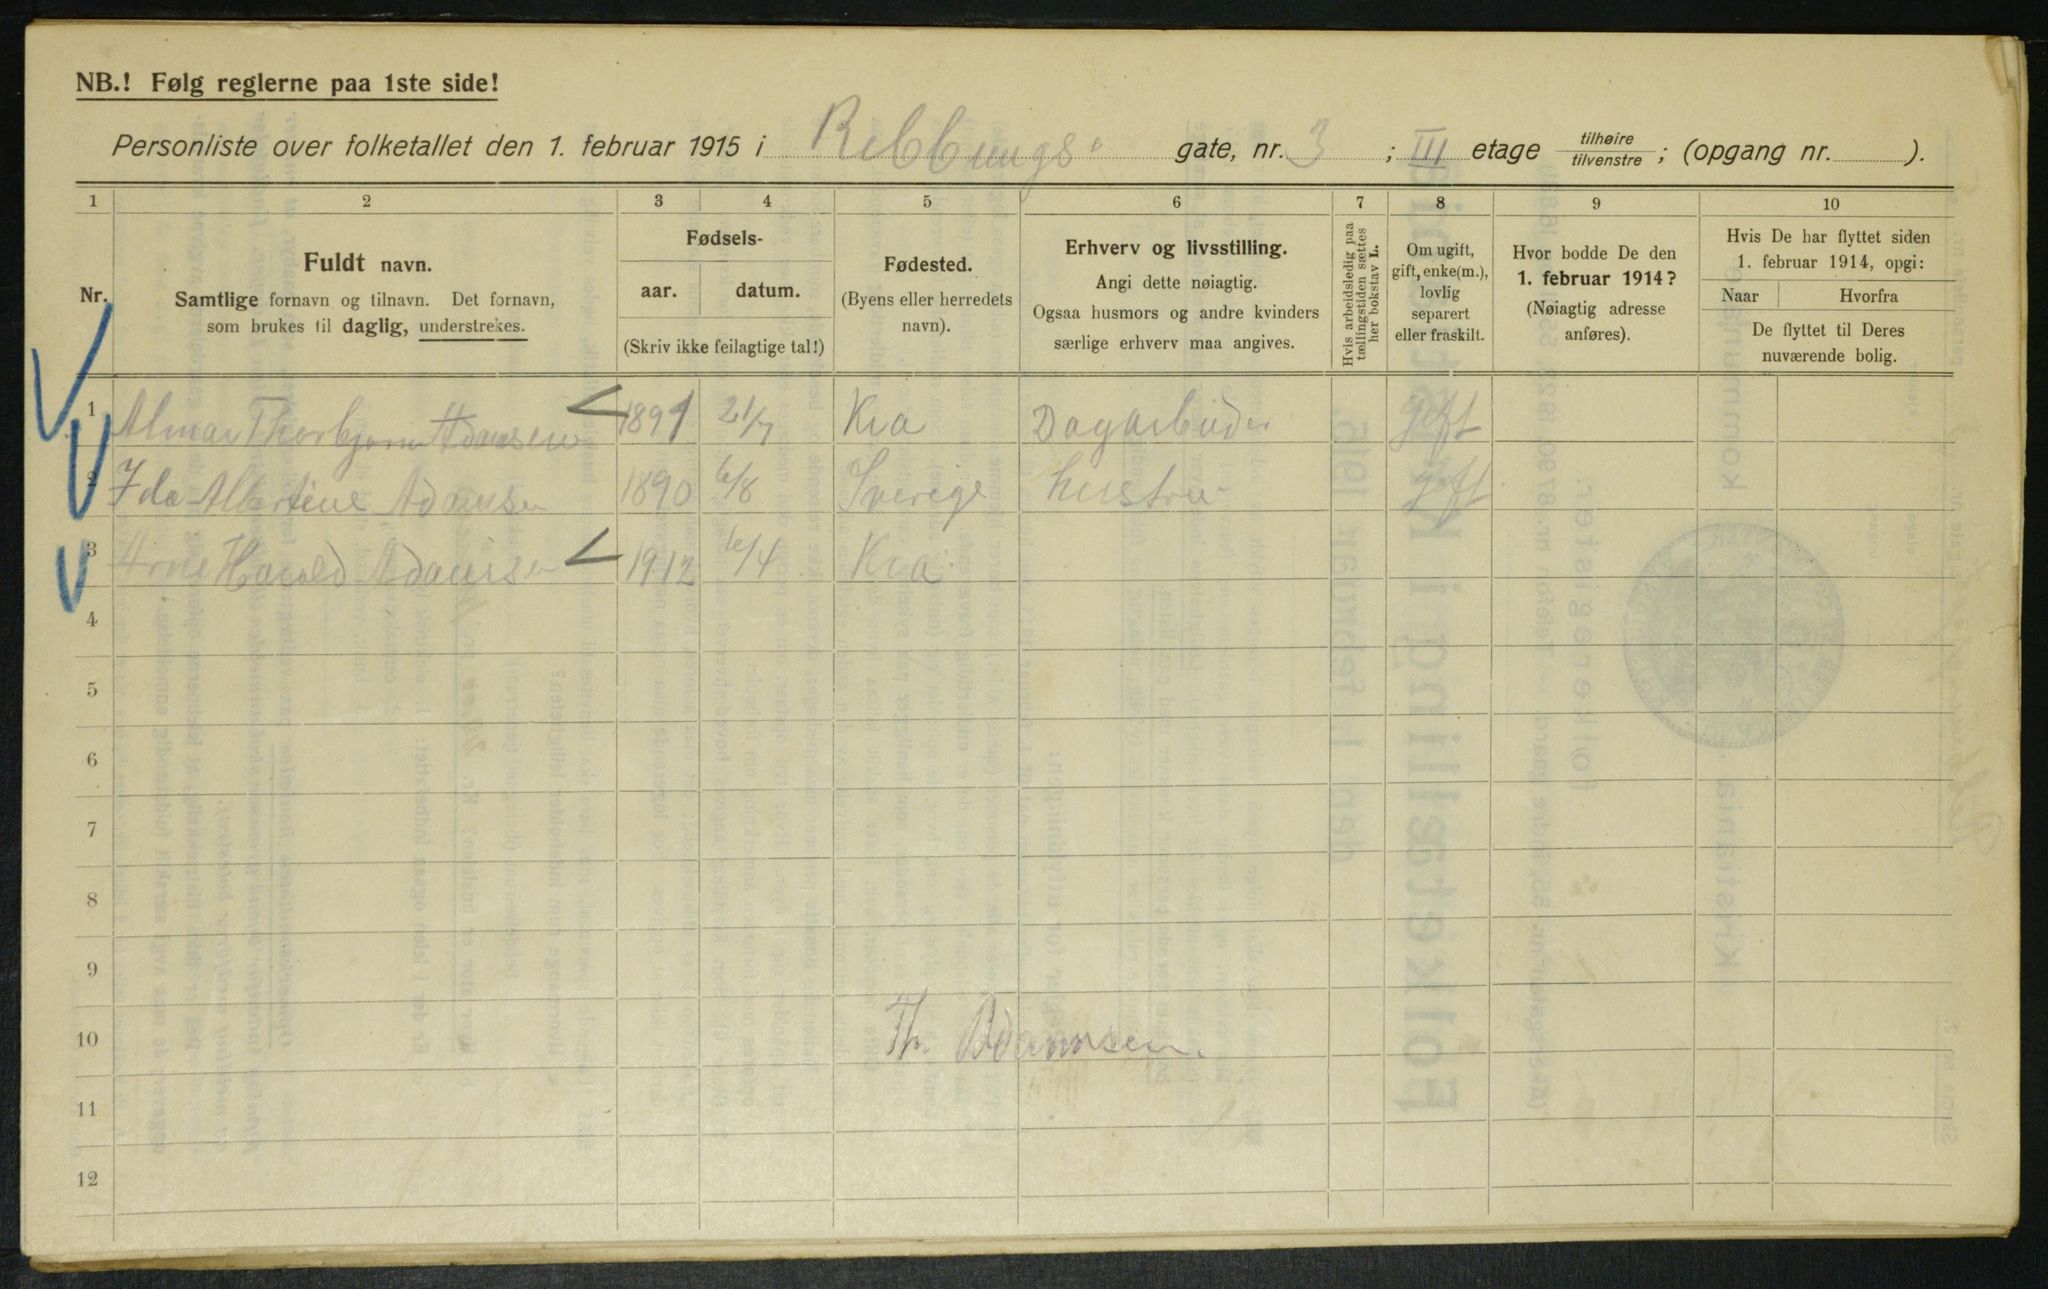 NB.! Følg reglerne paa 1ste side!
Personliste over folketallet den 1. februar 1915 i Ribbungs gate, nr. 3 ; III etage tilhøire / tilvenstre ; (opgang nr. ).
1 2 3 4 5 6 7 8 9 10
Nr.
Fuldt navn.
Samtlige fornavn og tilnavn. Det fornavn,
som brukes til daglig, understrekes.
Fødsels-
aar. datum.
(Skriv ikke feilagtige tal!)
Fødested.
(Byens eller herredets
navn).
Erhverv og livsstilling.
Angi dette nøiagtig.
Ogsaa husmors og andre kvinders
særlige erhverv maa angives.
Hvis arbeidsledig paa
tællingstiden sættes
her bokstav L.
Om ugift,
gift, enke(m.),
lovlig
separert
eller fraskilt.
Hvor bodde De den
1. februar 1914?
(Nøiagtig adresse
anføres).
Hvis De har flyttet siden
1. februar 1914, opgi:
Naar Hvorfra
De flyttet til Deres
nuværende bolig.
1 Almar Thorbjørn Adamsen 1891 21/7 Kra Dagarbeider gift
2 Ida Albertine Adamsen 1890 6/8 Sverige hustru gift
3 Arne Harald Adamsen 1912 6/4 Kra
4
5
6
7
8
9
10 Th. Adamsen.
11
12